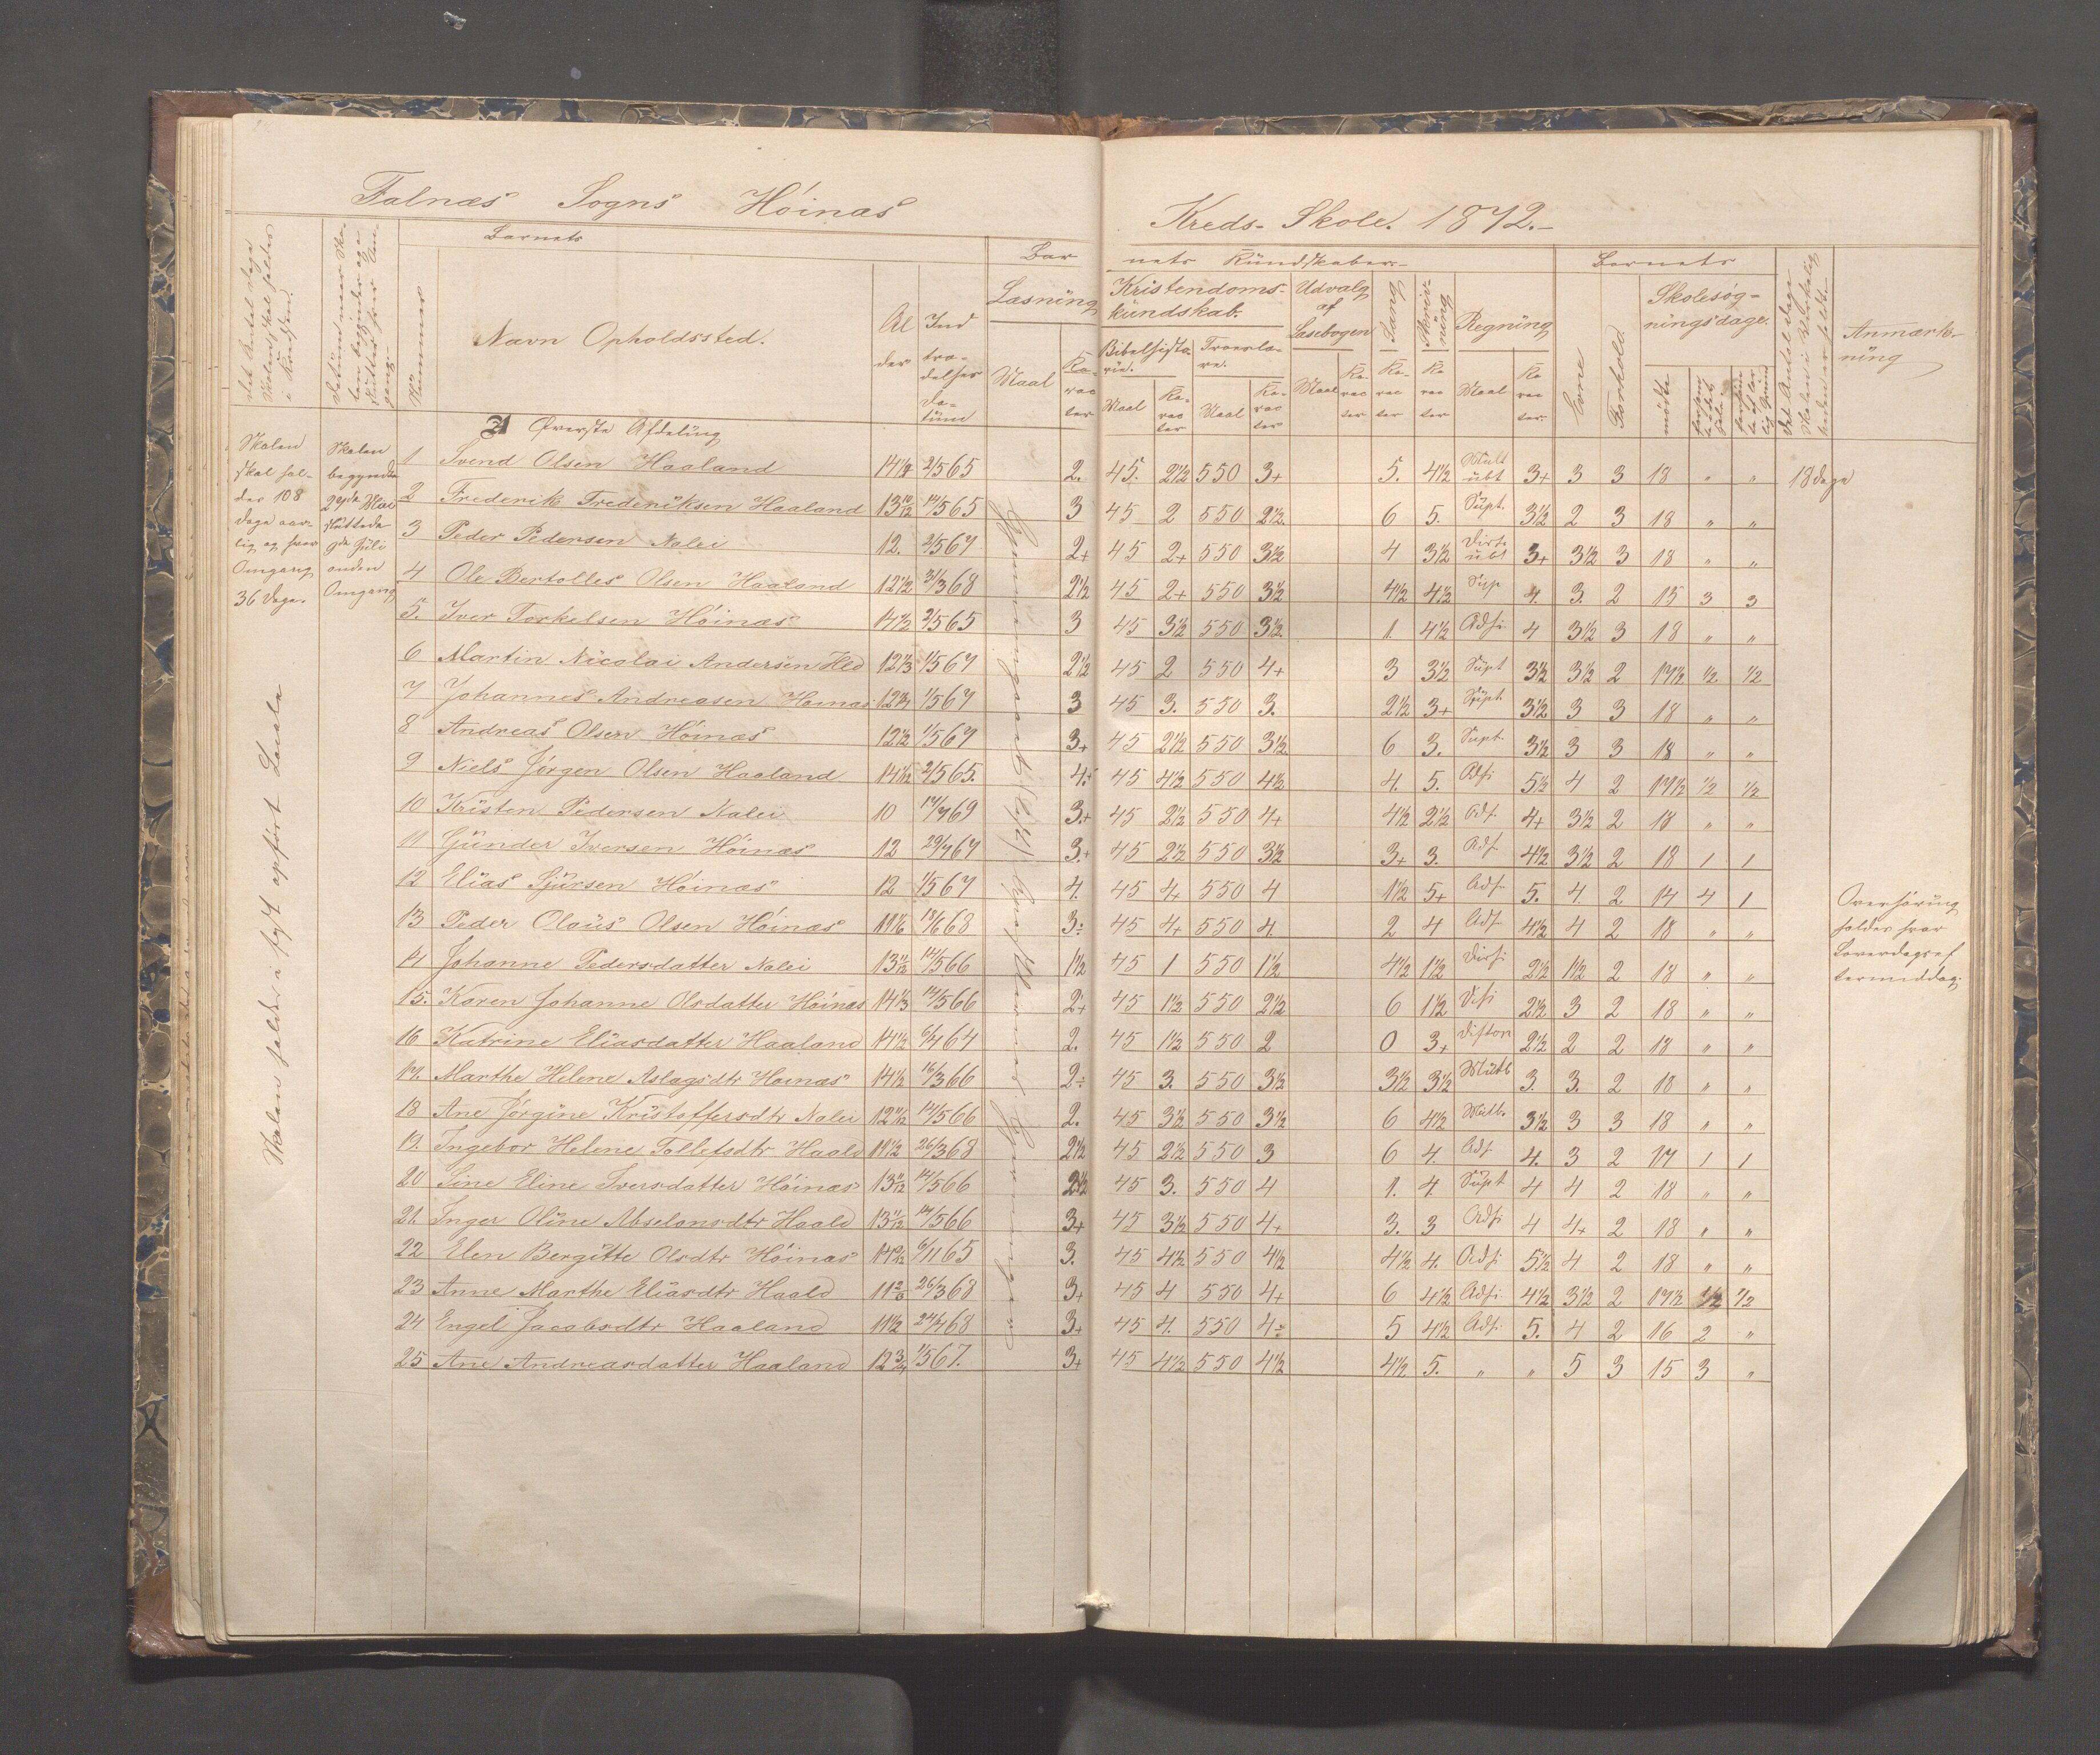 Falnæs Sogns Höinæs
Kreds-Skole. 1872.-
Barnets
Navn Opholdssted.
Al
der
Ind
træ-
delses
Da-
tüm
Bar
nets Kündskaber.-
Læsning
Maal
Ka-
rac
ter
Kristendoms-
kündskab.
Bibelhisto-
rie.
Troeslæ-
re.
Maal
Ka-
rac
ter
Maal
Ka-
rac
ter
Udvalg
af
Læsebogen
Maal
Ka-
rac
ter
Sang
Ka-
rac
ter
Skriv-
ning
Ka
rac
ter
Regning
Maal
Ka
rac
ter.
Barnets
Evne
Forhold.
Skolesög-
ningsdage.
mödte
Anmærk-
ning
Nummer
A Øverste Afdeling
Skolen
skal hol-
des 108
Dage aar-
lig og hver
Omgang
36 Dage.
Skolen
begyndte
29de Mai
sluttede
9de Juli
anden
Omgang
Skolen holdes i fast opført Locale
1 Svend Olsen Haaland 14½ 2/5 65 2. 45. 2½ 550 3+ 5. 4½ Mult übt 3+ 3 3 18 " " 18 dage
2 Frederik Frederiksen Haaland 13 10/12 14/5 65 3 45 2 550 2½ 6 5. Supt. 3½ 2 3 18 " "
3 Peder Pedersen Nalei 12. 2/5 67 2+ 45 2+ 550 3½ 4 3½ Divis übt 3+ 3½ 3 18 " "
4 Ole Bertolles Olsen Haaland 12½ 31/3 68 2½ 45 2+ 550 3½ 4½ 4½ Sup 4. 3. 2 15 3 3
5. Iver Torkelsen Höinæs 14½ 2/5 65 3 45 3½ 550 3½ 1. 4½ Adsi 4 3½ 3 18 " "
6 Martin Nicolai Andersen Hld 12⅓ 1/5 67 2½ 45 2 550 4+ 3 3½ Supt 3½ 3½ 2 17½ ½ ½
7 Johannes Andreasen Höinæs 1/5 67 3 45 3. 550 3. 2½ 3+ Supt. 3½ 3 3 18 " "
8 Andreas Olsen Höinæs 12½ 1/5 67 3+ 45 2½ 550 3½ 6 3. Supt. 3½ 3 3 18 " "
9 Niels Jörgen Olsen Haaland 2/5 65. 4+ 45 4½ 550 4½ 4. 5. Adsi 5½ 4 2 17½ ½ ½
10 Kristen Pedersen Nalei 10 14/7 69 3.+ 45 2½ 550 4+ 4½ 2½ Ads. 4+ 3½ 2 18 " "
11 Günder Iversen Höinæs 12 29/7 67 3.+ 45 2½ 550 3½ 3+ 3. Ads 4½ 3½ 2 18 1 1
12 Elias Sjürsen Höinæs 12 1/5 67 4. 45 4 550 4 1½ 5+ Ads. 5. 4. 2 14 4 1
13 Peder Olaüs Olsen Höinæs 18/6 68 3÷ 45 4 550 4. 2 4 Ads. 4½ 4 2 18 " "
14 Johanne Pedersdatter Nalei 13 11/12 14/5 66 1½ 45 1 550 1½ 4½ 1½ Divsi 2½ 1½ 2 18 " "
15. Karen Johanne Olsdatter Höinæs 14⅓ 14/5 66 2+ 45 1½ 550 2½ 6 1½ 2½ 3 2 18 " "
16 Katrine Eliasdatter Haaland 14½ 6/4 64 2. 45 1½ 550 2 0 3+ 2½ 2 2 18 " "
17. Marthe Helene Aslagsdtr Höinæs 14½ 16/3 66 2÷ 45 3. 550 3½ 3½ 3½ 3. 3. 2 18 " "
18 Ane Jörgine Kristoffersdtr Nalei 12 11/12 14/5 66 2. 45 3½ 550 3½ 6 4½ 3½ 3 3 18 " "
19. Ingebor Helene Tollefsdtr Haald 11½ 26/3 68 2½ 45 2½ 550 3 6 4. Ads 4. 3 2 17 1 1
20 Sine Eline Iversdatter Höinæs 13 11/12 14/5 66 2½ 45 3. 550 4 1. 4. Supt 4 4 2 18 " "
21. Inger Oline Abselonsdtr Haald 13 11/12 14/5 66 3+ 45 3½ 550 4+ 3. 3 Adsi 4 4+ 2 18 " "
22 Elen Bergitte Olsdtr Höinæs 6/11 65 3. 45 4½ 550 4½ 4½ 4. Adsi 5½ 4 2 18 " "
23 Anne Marthe Eliasdtr Haald 26/3 68 3+ 45 4 550 4+ 6 4½ Adsi 4½ 3½ 2 17½ ½ ½
24 Engel Jacobsdtr Haaland 11½ 24/4 68 3+ 45 4. 550 4÷ 5 4½ Ads. 5. 4 2 16 2 "
25 Ane Andreasdatter Haaland 12¾ 1/5 67. 3+ 45 4½ 550 4½ 4½ 5. " " 5 3 15 3 "
Overhöring
holdes hver
Löverdagsef
termiddag.